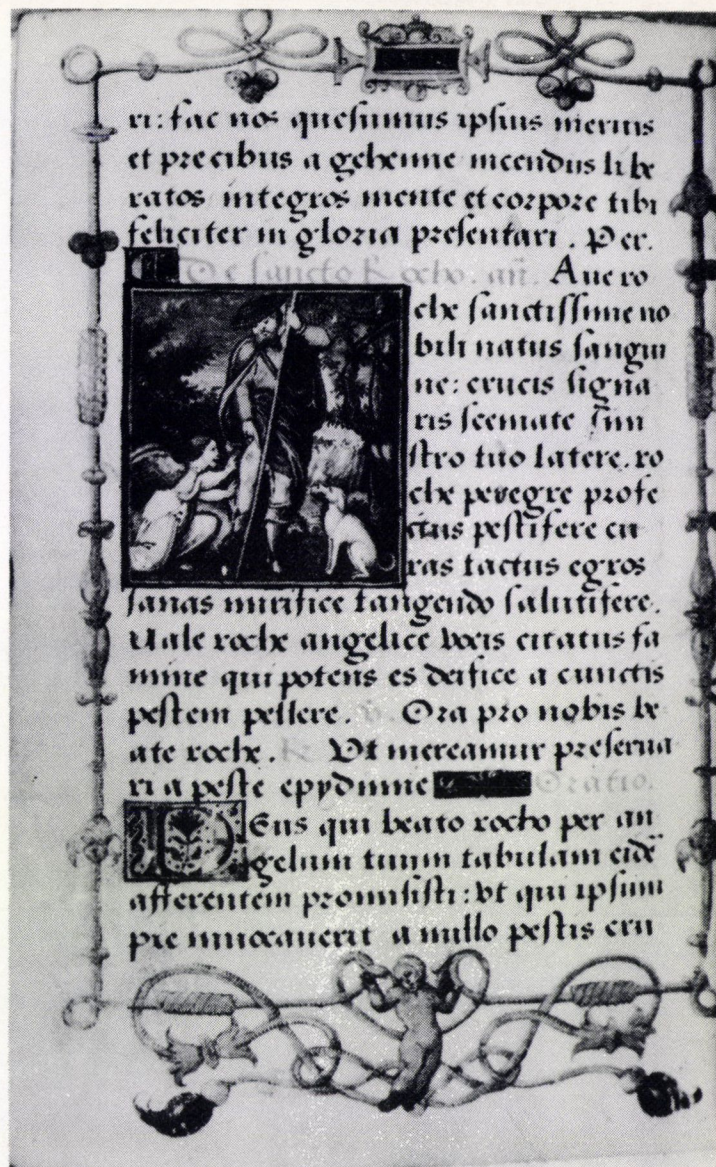 ri: fac nos quesumus ipsius meritis
et precibus a gehenne incendiis libe
ratos integros mente et corpore tibi
feliciter in gloria presentari. Per.
De sancto Rocho. an̄. Aue ro
che sanctissime no
bili natus sangui
ne: crucis signa
ris scemate sini
stro tuo latere. ro
che peregre profe
ctus pestifere cu
ras tactus egros
sanas mirifice tangendo salutifere.
Uale roche angelice vocis citatus fa
mine qui potens es deifice a cunctis
pestem pellere. Ora pro nobis be
ate roche. R Ut mereamur preserua
ri a peste epydimie Oratio.
Deus qui beato rocho per an
gelum tuum tabulam eidē
afferentem promisisti: vt qui ipsum
pie inuocauerit a nullo pestis cru